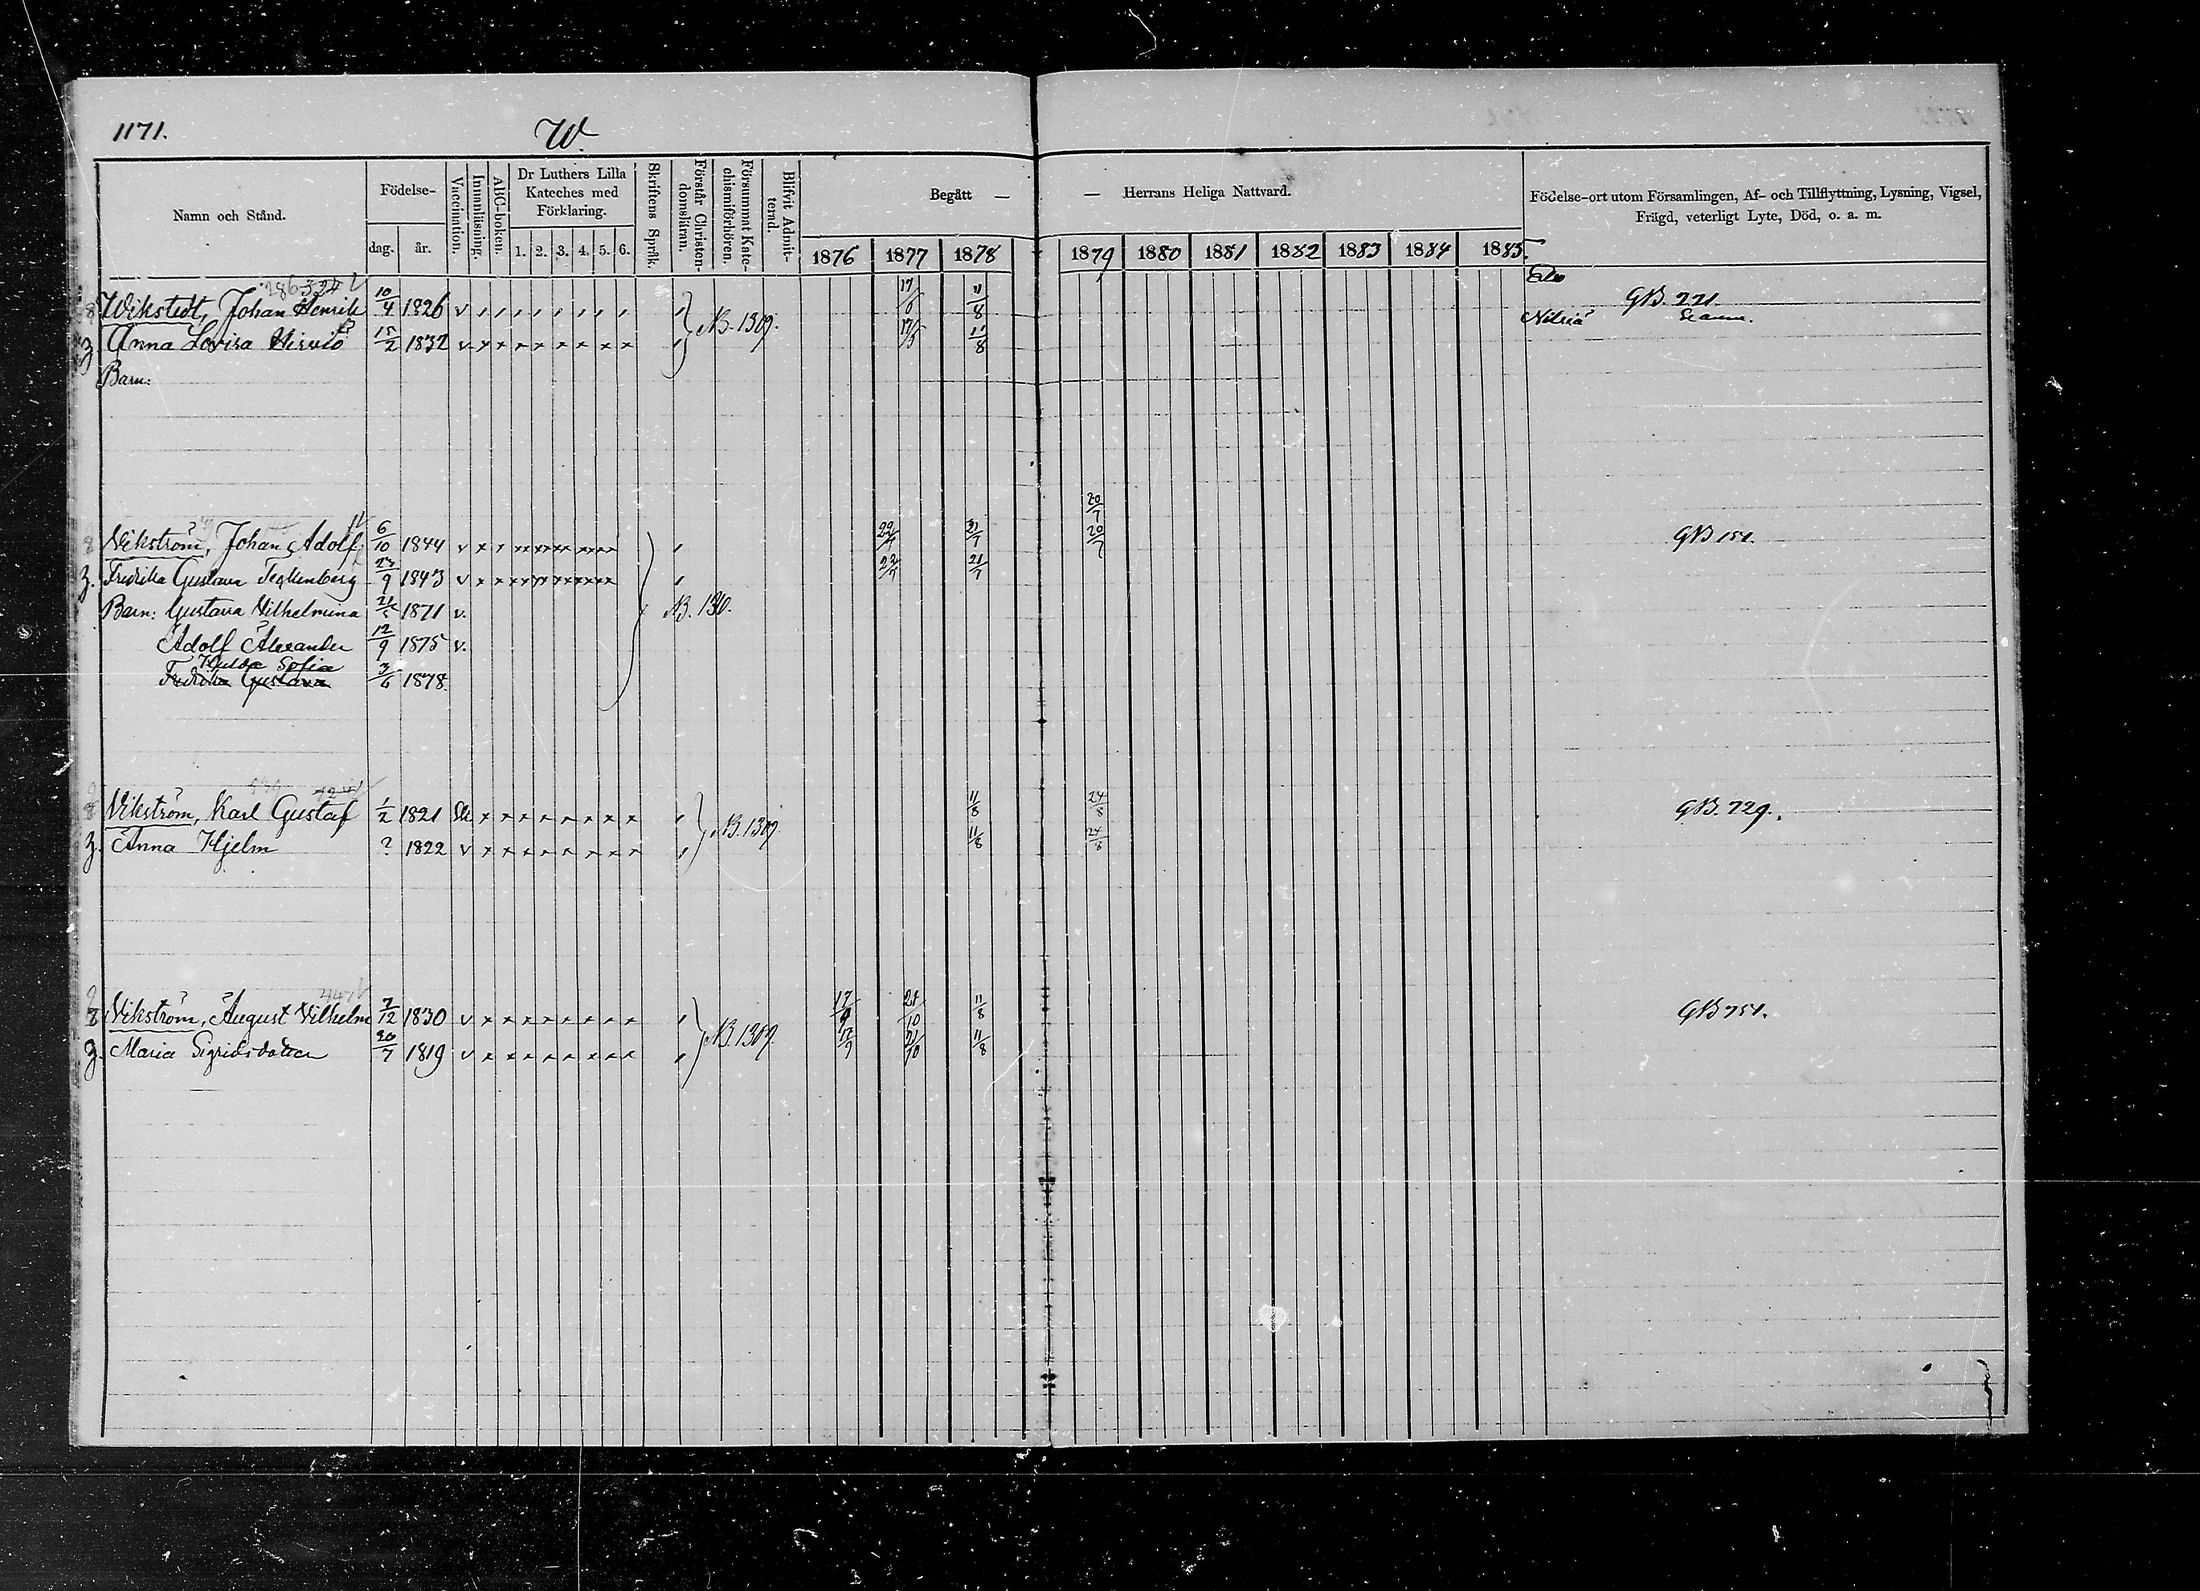 1171.
W.
Namn och Stånd.
Födelse-
dag.
år.
Vaccination.
Innanläsning.
ABC-boken.
Dr Luthers Lilla
Kateches med
Förklaring.
1. 2. 3. 4. 5. 6.
Skriftens Språk.
Förstår Christen-
domsläran.
Försummat Kate-
chismiförhören.
Blifvit Admit-
terad.
Begått —
— Herrans Heliga Nattvard.
1876 1877 1878 1879 1880 1881 1882 1883 1884 1885
Födelse-ort utom Församlingen, Af- och Tillflyttning, Lysning, Vigsel,
Frägd, veterligt Lyte, Död, o. a. m.
Wikstedt, Johan Henrik 10/4 1826 v 17/6 11/8 GB. 221.
Anna Lovisa 15/2 1832 v NB. 1309. 11/8
Barn:
20/7
Vikström, Johan Adolf 6/10 1844 v 22/7 21/7 20/7 GB 151.
Fredrika Gustava Tecklenberg 23/9 1843 v 22/7 21/7
Barn: Gustava Vilhelmina 1871 v. NB. 130.
Adolf Alexander 12/9 1875 v.
Hulda Sofia
Fredrika Gustava 3/6 1878.
Vikström, Karl Gustaf 1/2 1821 11/8 24/8 GB. 729.
Anna Hjelm ? 1822 v NB. 1309. 11/8 24/8
Vikström, August Vilhelm 7/12 1830 v 17/9 21/10 11/8 GB 751.
Maria Sigridsdotter 20/7 1819 v NB. 1309. 17/9 21/10 11/8